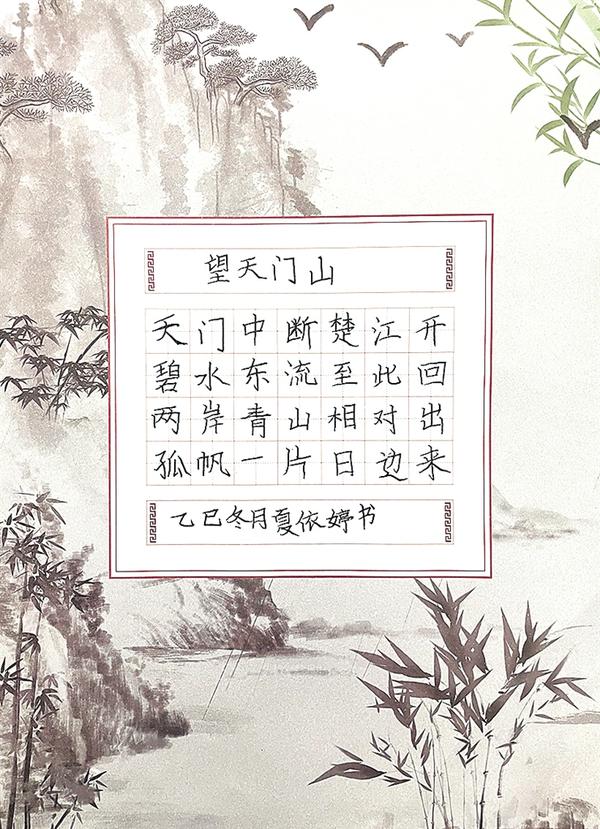 望天门山
天门中断楚江开
碧水东流至此回
两岸青山相对出
孤帆一片日边来
乙巳冬月夏依婷书